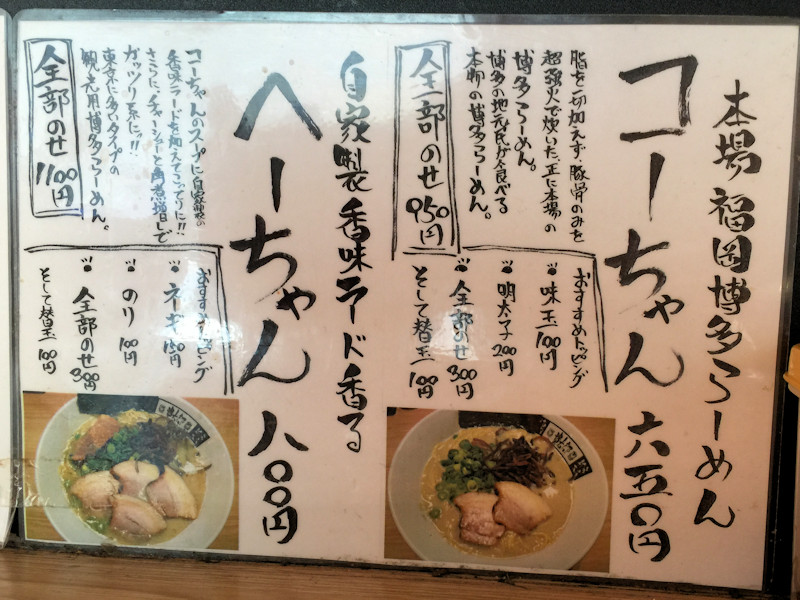 本場 福岡博多らーめん
コーちゃん 六五〇円
脂を一切加えず、豚骨のみを
超強火で炊いた、正に本場の
博多らーめん。
博多の地元民が食べる
本物の博多らーめん。
全部のせ 950円
おすすめトッピング
味玉 100円
明太子 200円
全部のせ 300円
そして替玉 100円
自家製 香味ラード香る
へーちゃん 八〇〇円
コーちゃんのスープに自家製の
香味ラードを加えてこってりに!!
さらに、チャーシューと角煮増しで
ガッツリ系にッ!!
東京に多いタイプの
観光用博多らーめん。
全部のせ 1100円
おすすめトッピング
ネギ 150円
のり 100円
全部のせ 300円
そして替玉 100円